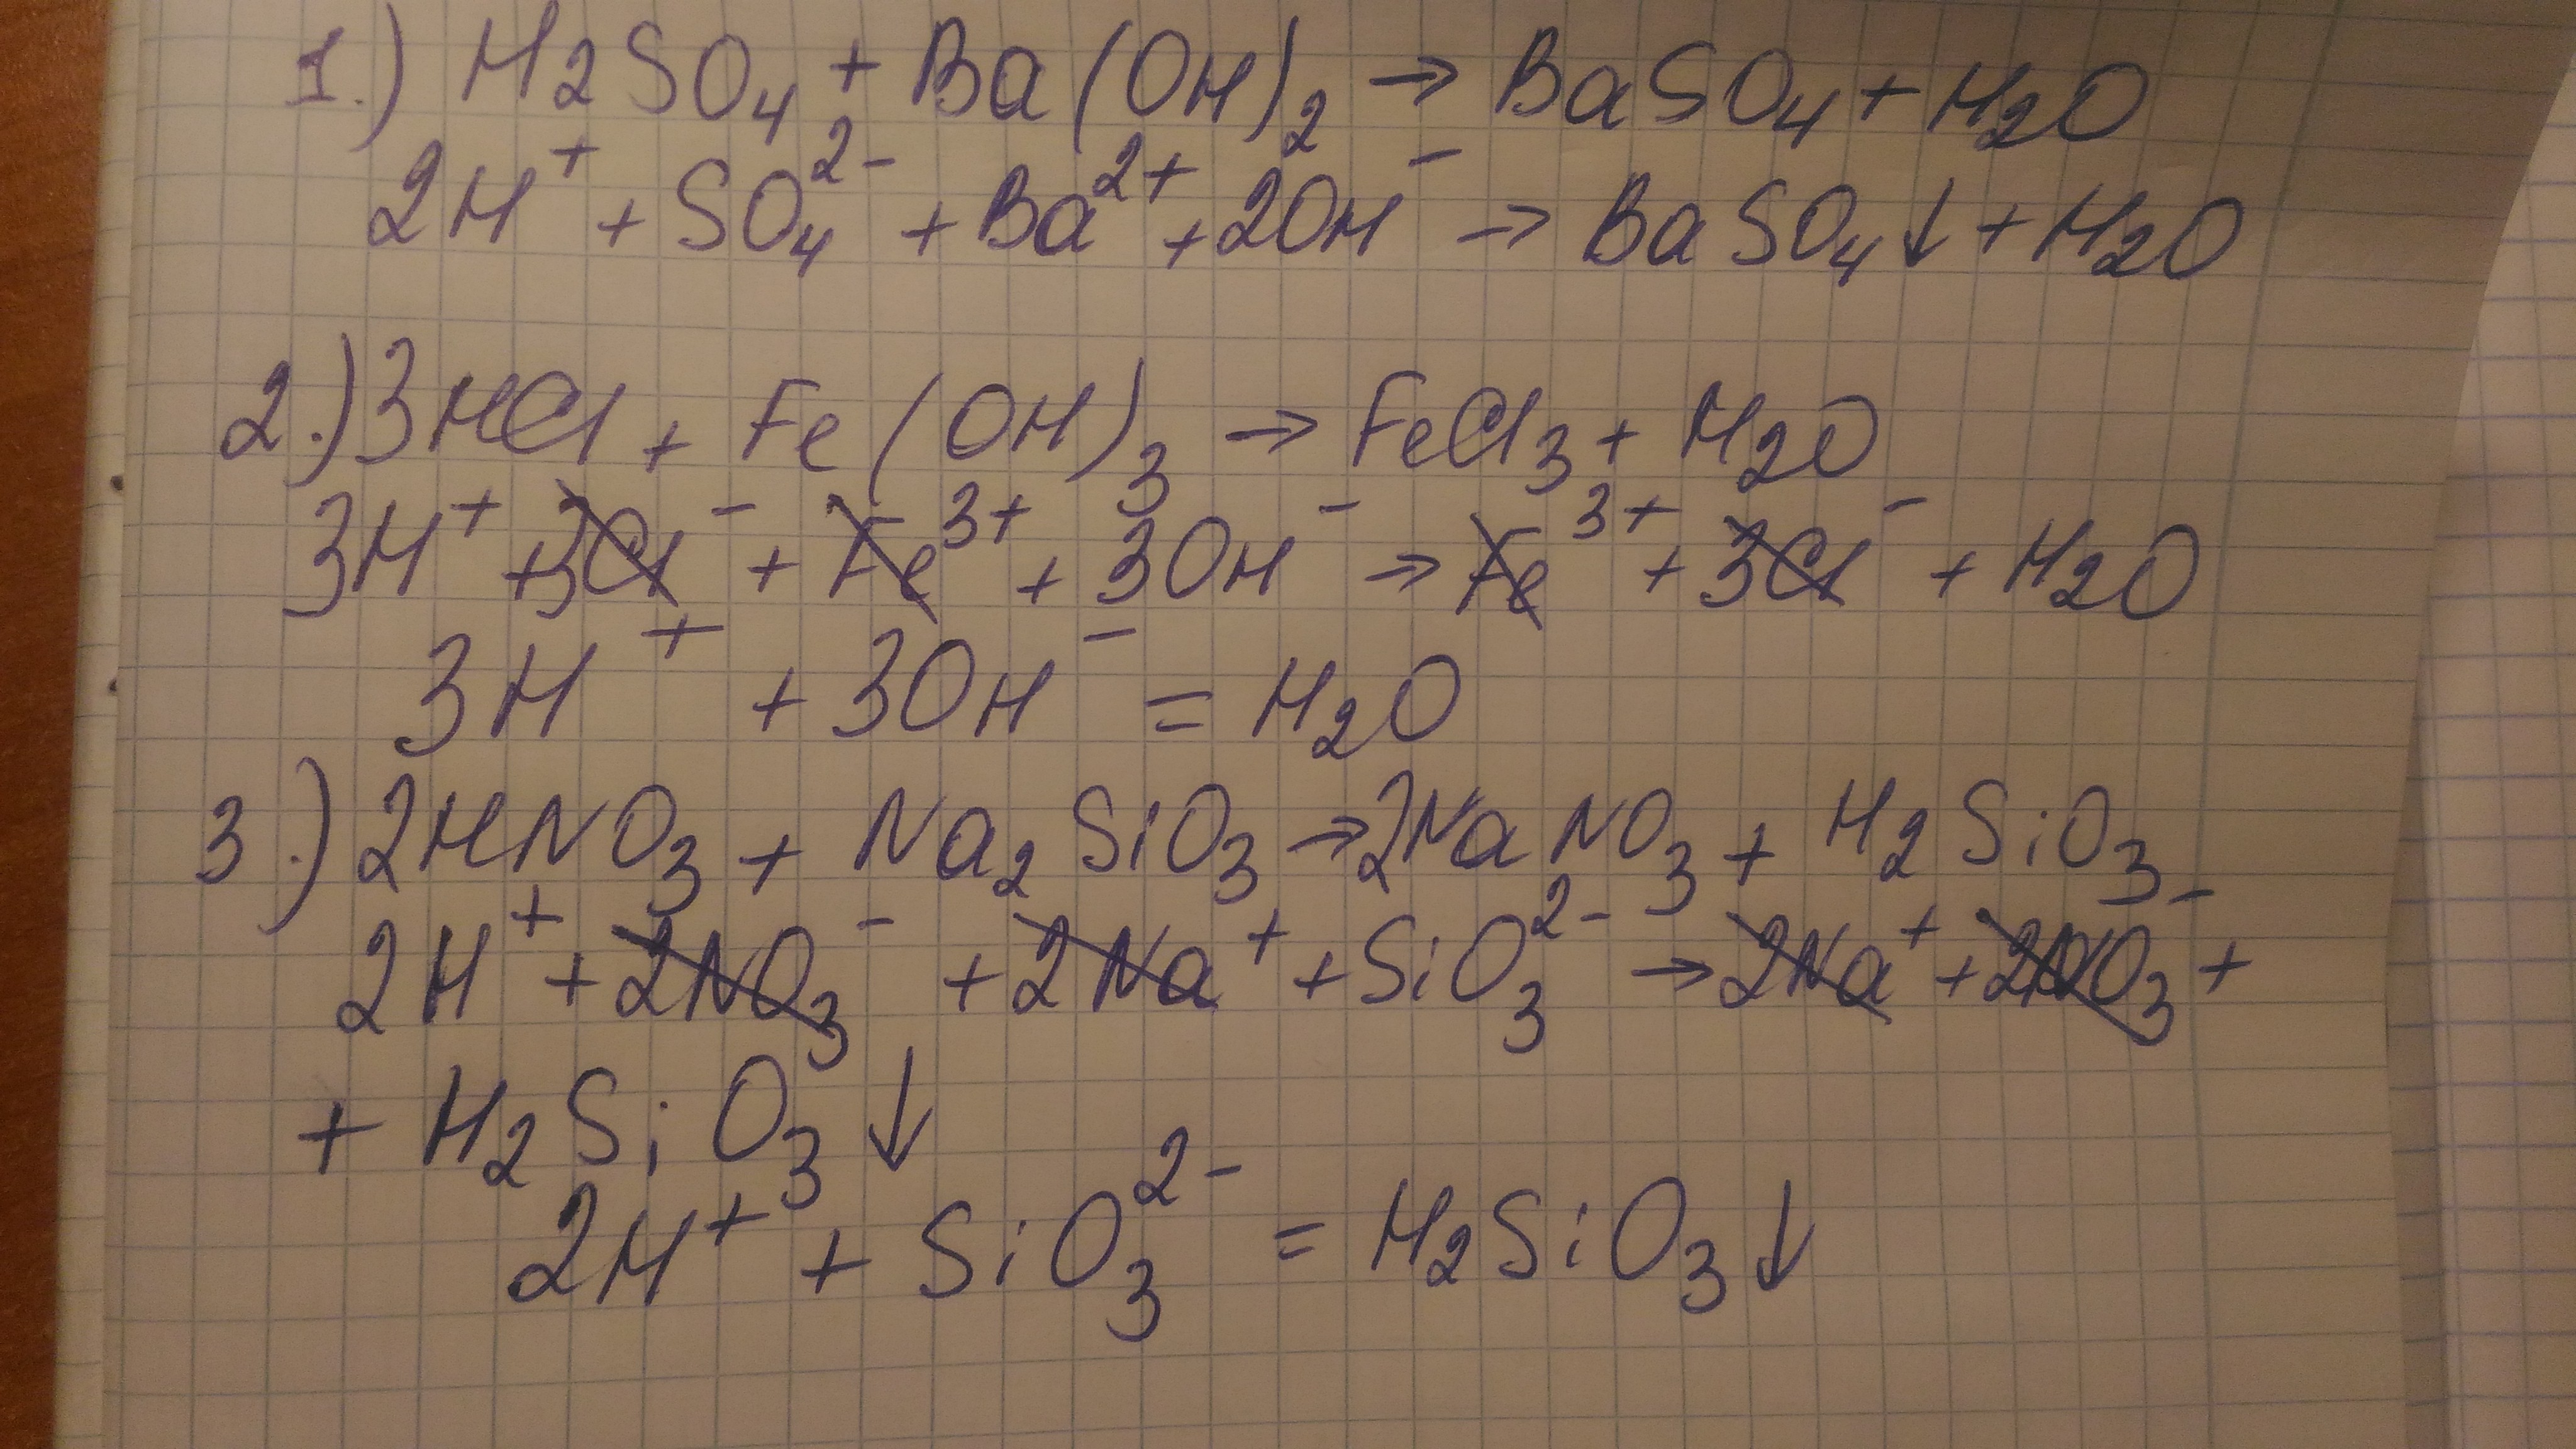 1.) H2SO4 + Ba(OH)2 → BaSO4 + H2O
2H⁺ + SO4²⁻ + Ba²⁺ + 2OH⁻ → BaSO4↓ + H2O
2.) 3HCl + Fe(OH)3 → FeCl3 + H2O
3H⁺ + 3Cl⁻ + Fe³⁺ + 3OH⁻ → Fe³⁺ + 3Cl⁻ + H2O
3H⁺ + 3OH⁻ = H2O
3.) 2HNO3 + Na2SiO3 → 2NaNO3 + H2SiO3
2H⁺ + 2NO3⁻ + 2Na⁺ + SiO3²⁻ → 2Na⁺ + 2NO3⁻ +
+ H2SiO3↓
2H⁺ + SiO3²⁻ = H2SiO3↓